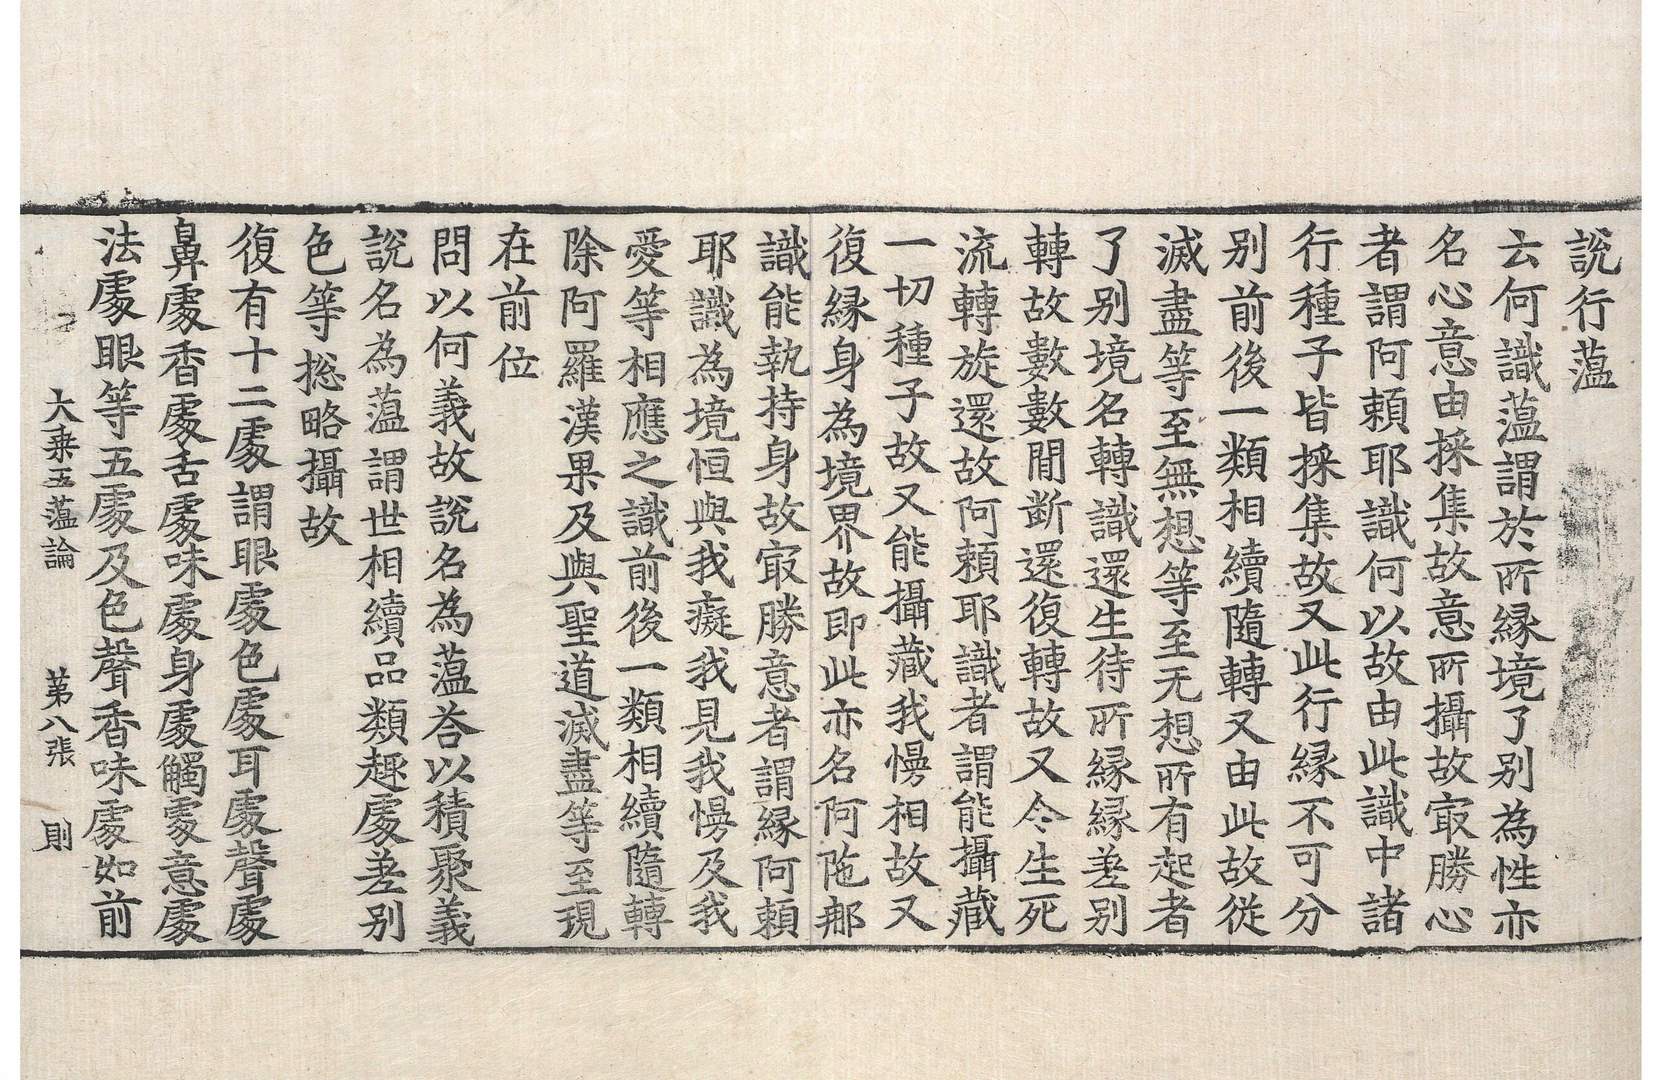 說行蘊
云何識蘊謂於所縁境了别為性亦
名心意由採集故意所攝故㝡勝心
者謂阿賴耶識何以故由此識中諸
行種子皆採集故又此行縁不可分
别前後一類相續隨轉又由此故從
滅盡等至無想等至无想所有起者
了别境名轉識還生待所縁縁差别
轉故數數閒斷還復轉故又令生死
流轉旋還故阿賴耶識者謂能攝藏
一切種子故又能攝藏我慢相故又
復縁身為境界故即此亦名阿陁那
識能執持身故㝡勝意者謂縁阿賴
耶識為境恒與我癡我見我慢及我
愛等相應之識前後一類相續隨轉
除阿羅漢果及與聖道滅盡等至現
在前位
問以何義故說名為蘊荅以積聚義
說名為蘊謂世相續品類趣處差别
色等捴略攝故
復有十二處謂眼處色處耳處聲處
鼻處香處舌處味處身處觸處意處
法處眼等五處及色聲香味處如前
大乘五蘊論 第八張 則